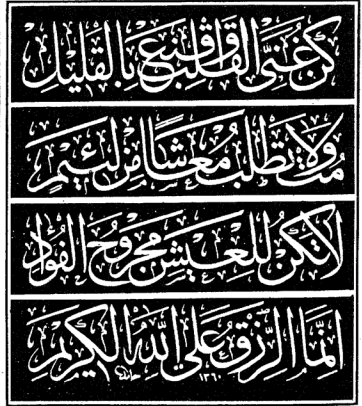 كُنْ غَنِيَّ الْقَلْبِ وَاقْنَعْ بِالْقَلِيلِ
مُتْ وَلَا تَطْلُبْ مَعَاشًا مِنْ لَئِيمٍ
لَا تَكُنْ لِلْعَيْشِ مَجْرُوحَ الْفُؤَادِ
إِنَّمَا الرِّزْقُ عَلَى اللَّهِ الْكَرِيمِ
حامد ١٣٦٠